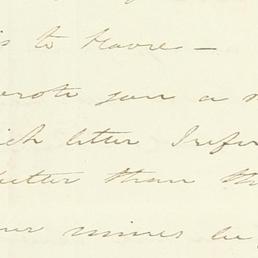 is to Havre —
wrote you a
ich letter I refer
better than th
our mines be